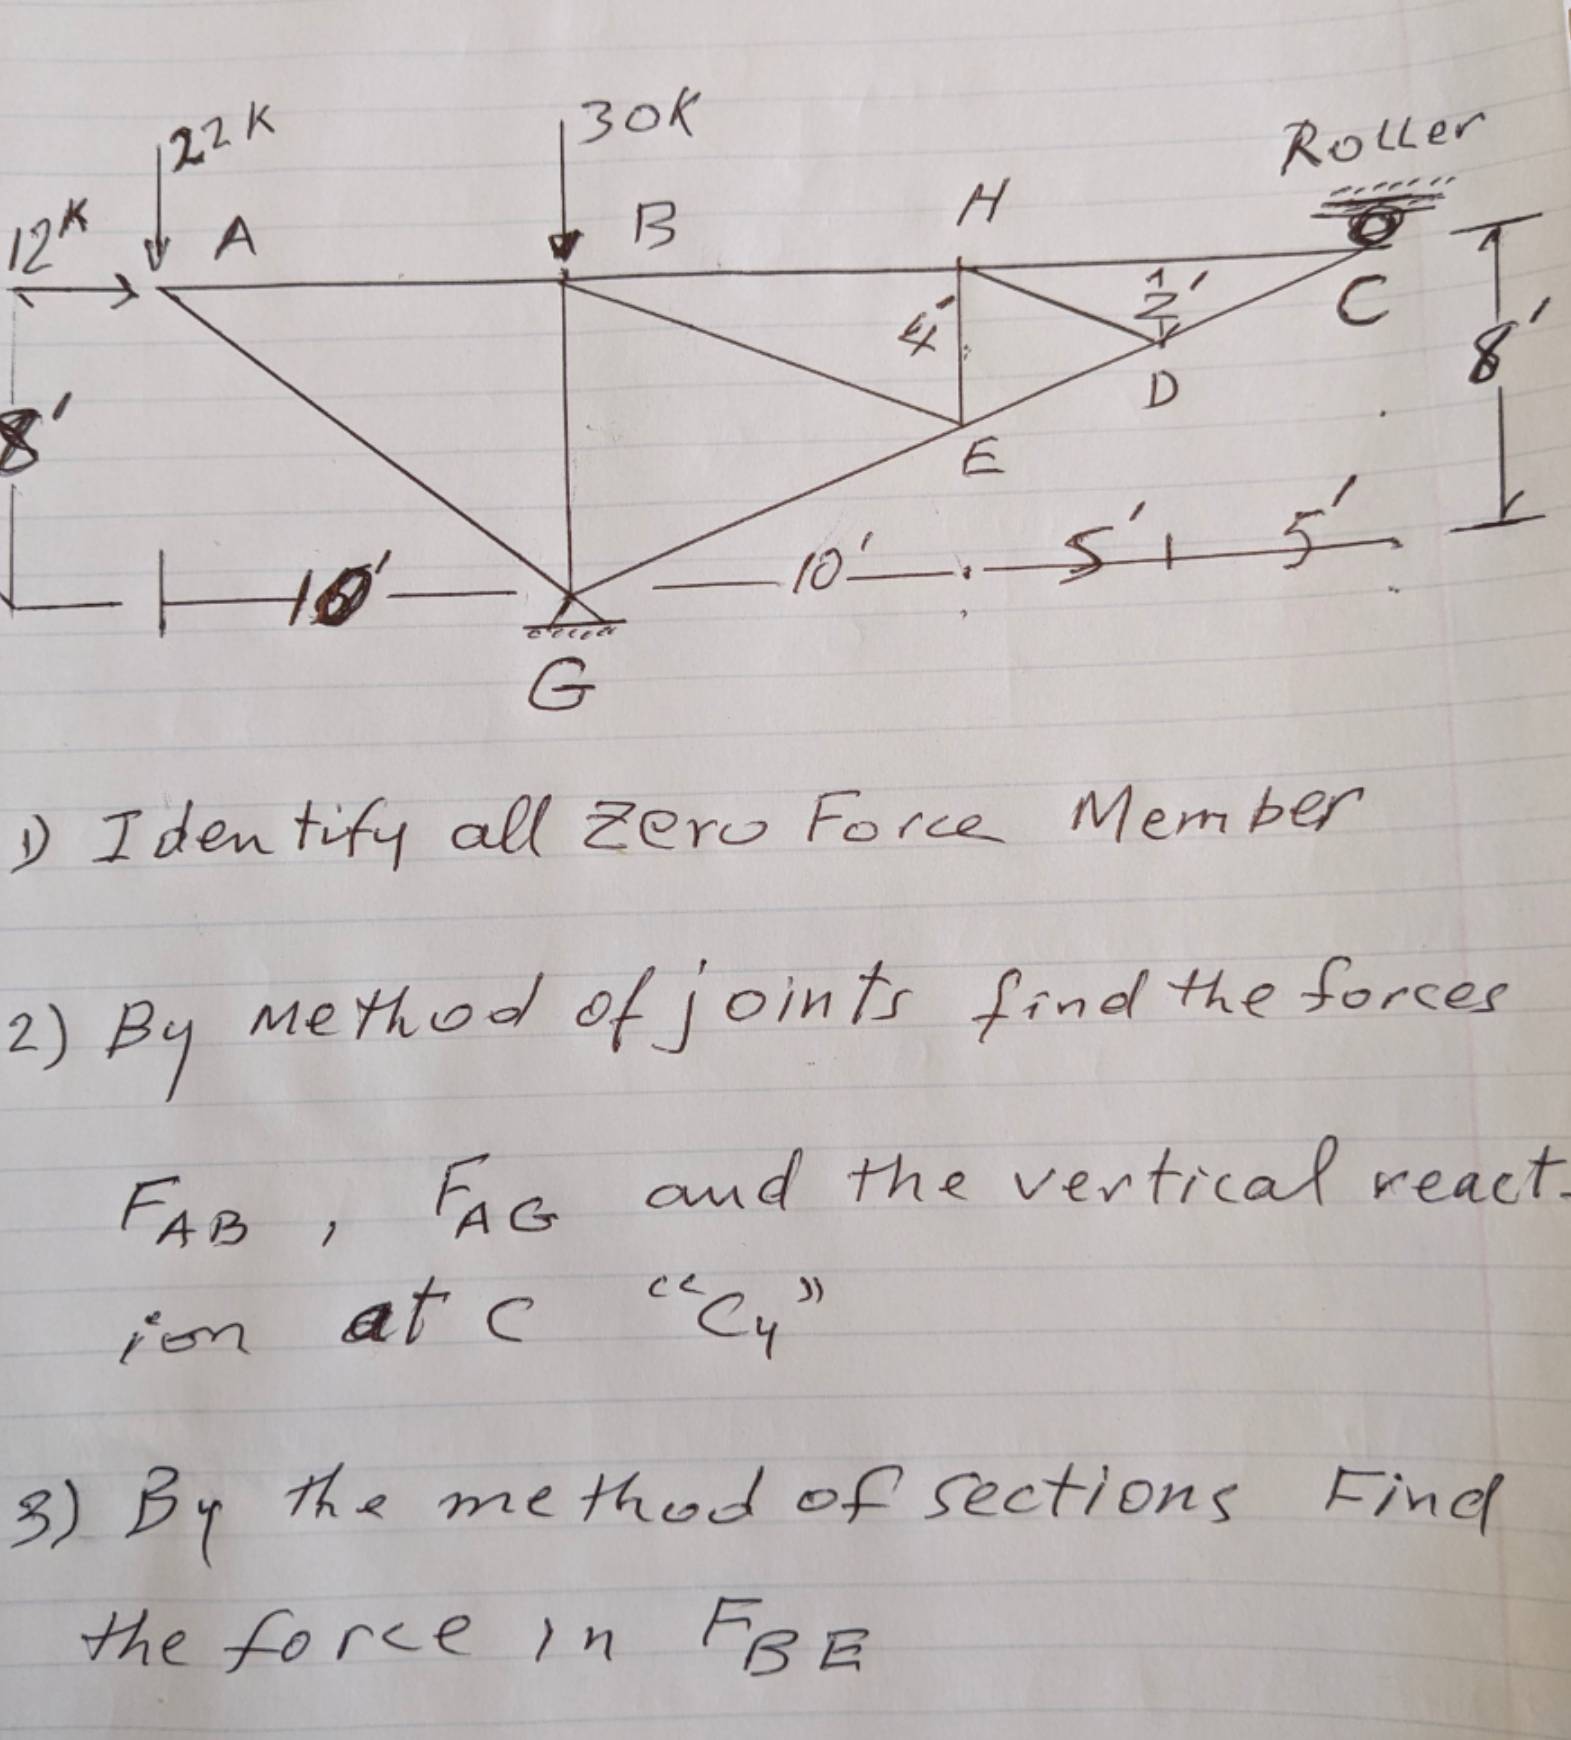 22K
30K
Roller
12K
A
B
H
C
4'
2'
8'
8'
D
E
10'
10'
5'
5'
G
1) Identify all Zero Force Member
2) By Method of joints find the forces
FAB, FAG and the vertical react-
ion at C "Cy"
3) By the method of sections Find
the force in FBE